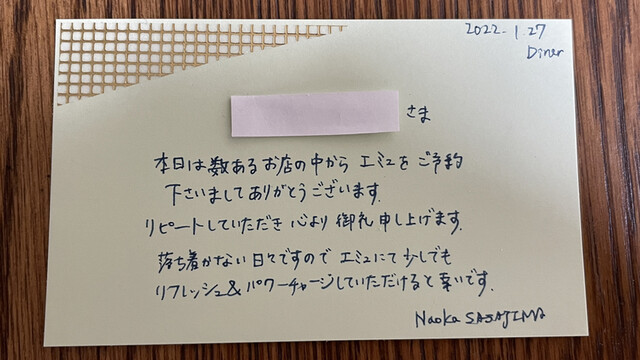 2022.1.27
Diner
さま
本日は数あるお店の中から エミュを ご予約
下さいましてありがとうございます.
リピートしていただき 心より 御礼 申し上げます.
落ち着かない 日々ですので エミュにて 少しでも
リフレッシュ&パワーチャージしていただけると 幸いです.
Naoka SASAJIMA